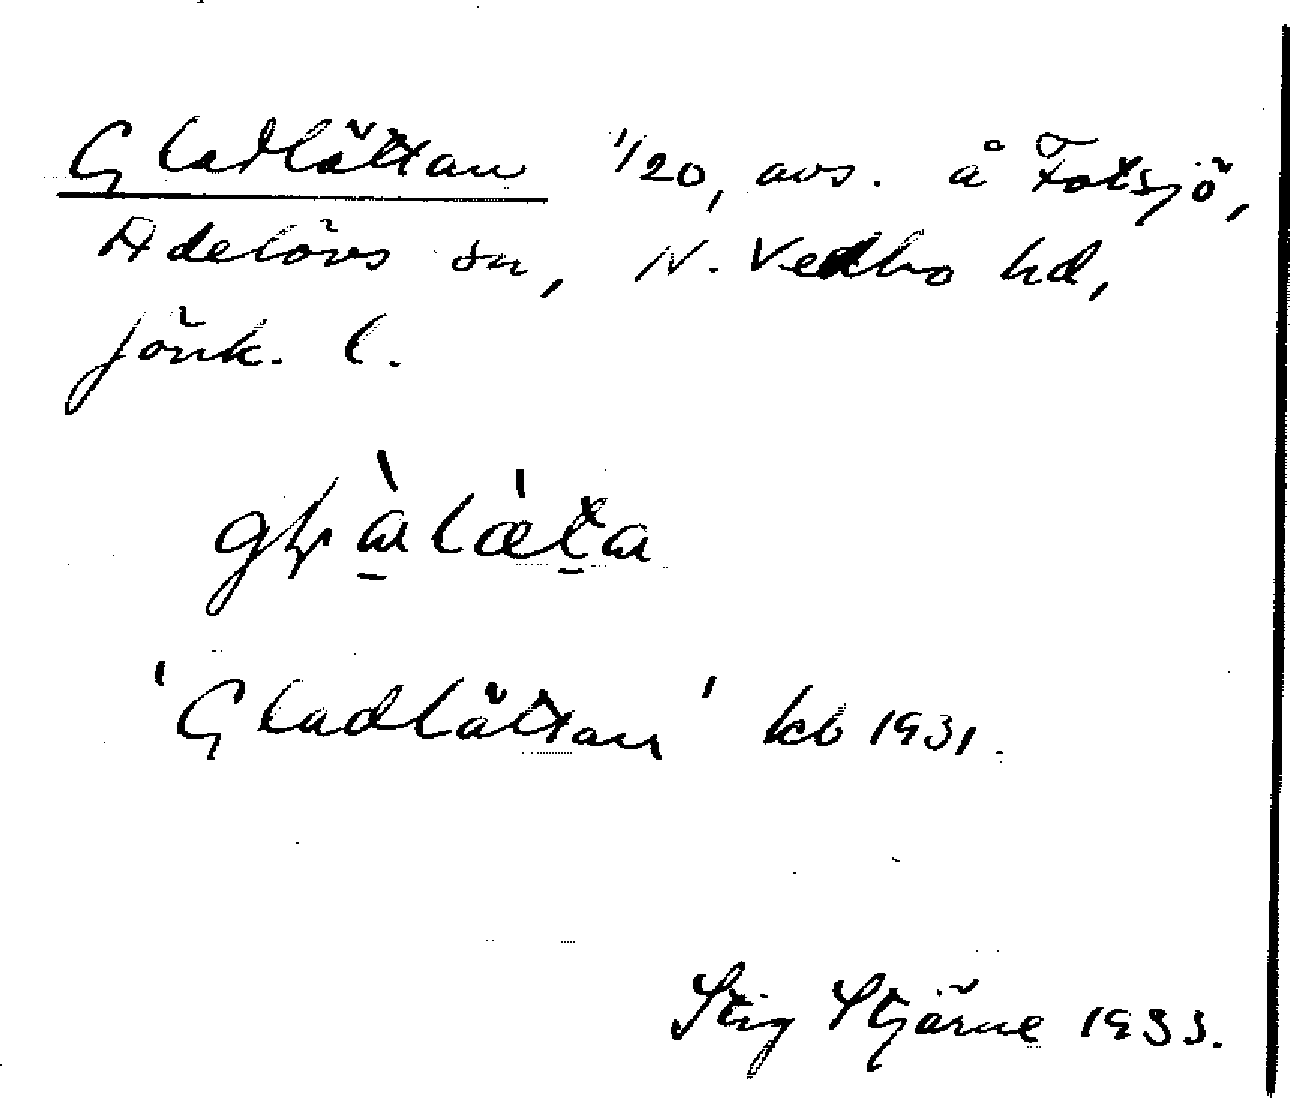 Gladlättan 1/20, avs. å Fotsjö,
Adelövs sn, N. Vedbo hd,
Jönk. l.
'Gladlättan' kb 1931.
Stig Stjärne 1933.